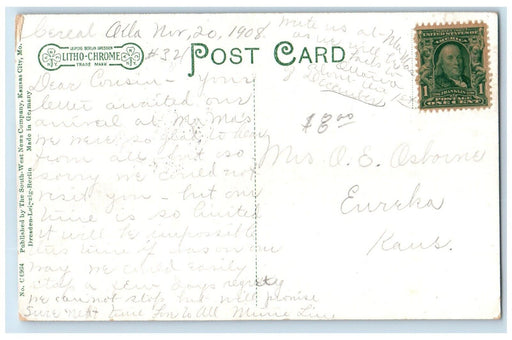 Cereal Okla Nov, 20, 1908.
#32
LEIPZIG BERLIN DRESDEN
LITHO-CHROME
TRADE MARK
POST CARD
Write us at
as we will
December
UNITED STATES OF
FRANKLIN
1 1
ONE CENT
Dear Cousin - Your
letter awaited our
arrival at Ma Mas
we were so glad to hear
from all, but so
sorry we could not
visit you - but our
time is so limited
it will be impossible
this time of season our
way we could easily
stop a few days regret
we can not stop but will promise
Sure next time Love to All Minnie Linn
$8.00
Mrs. O. E. Osborne
Eureka
Kans.
No. C 4364 Published by The South-West News Company, Kansas City, Mo.
Dresden-Leipzig-Berlin Made in Germany